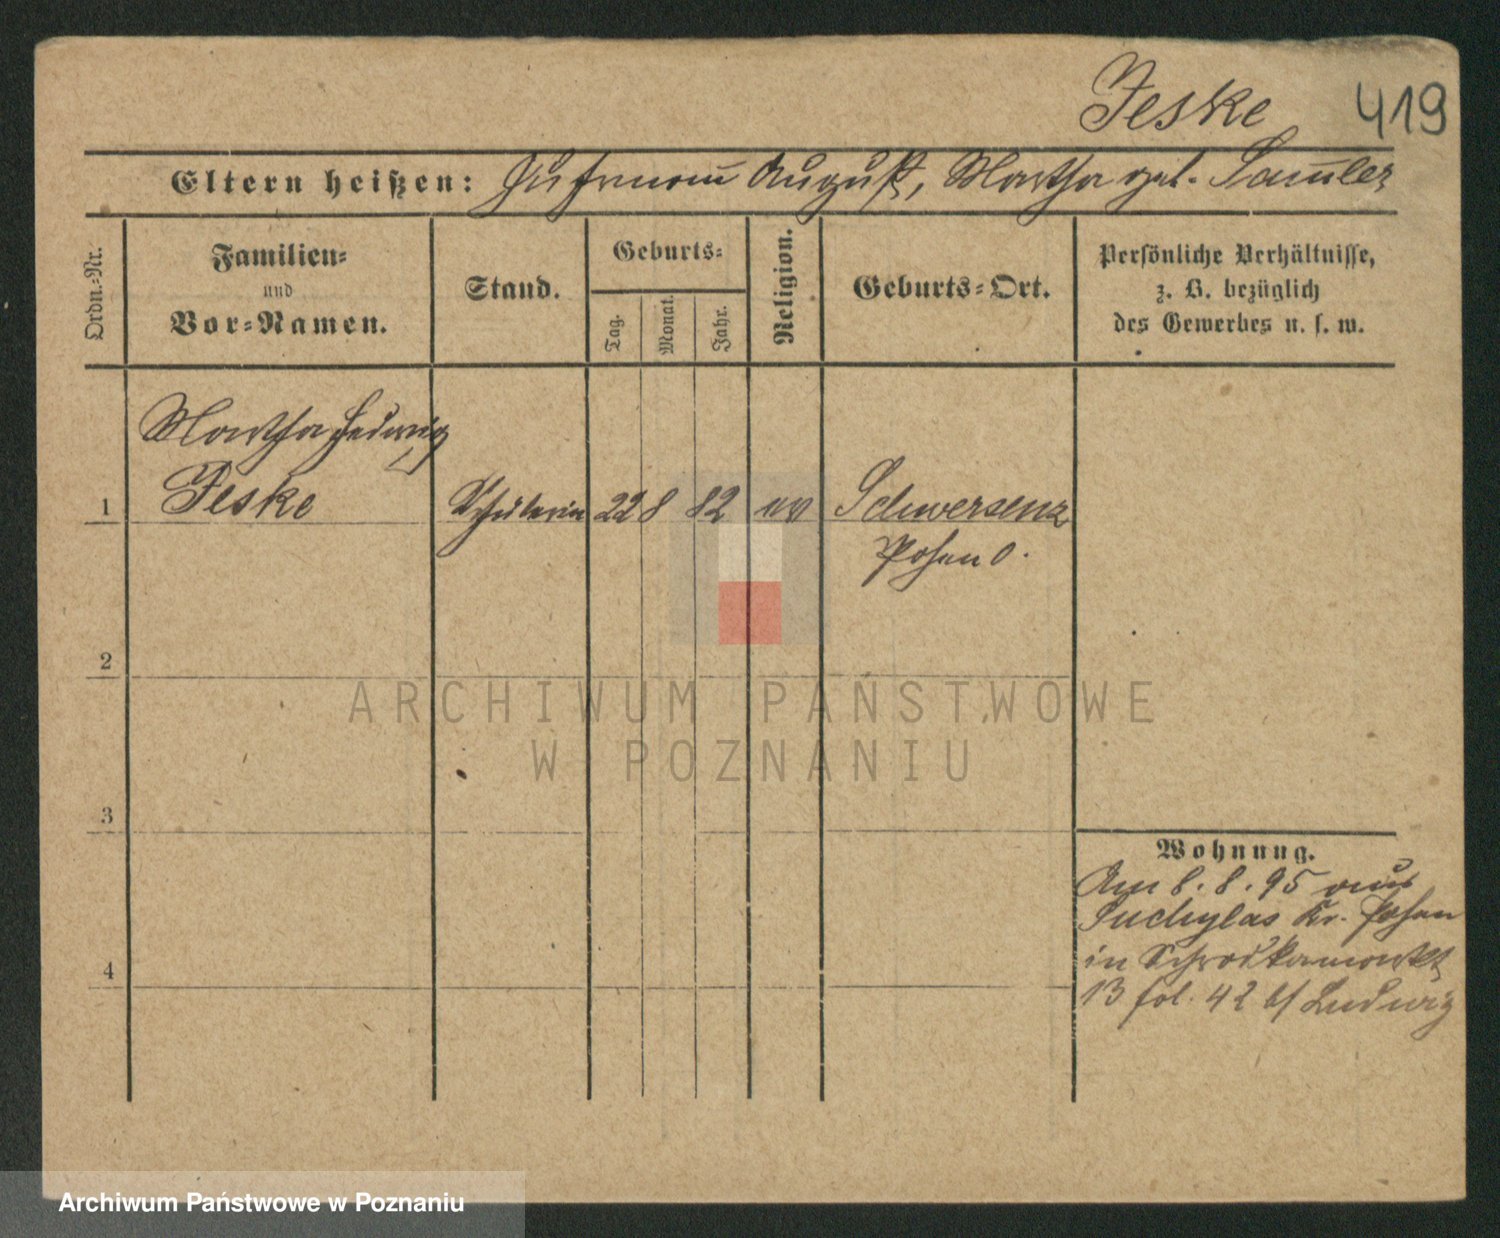 Jeske 419
Eltern heißen: Fuhrmann August, Martha geb. Samler
Ordn.-Nr.
Familien-
und
Vor-Namen.
Stand.
Geburts-
Tag.
Monat.
Jahr.
Religion.
Geburts-Ort.
Persönliche Verhältnisse,
z. B. bezüglich
des Gewerbes u. s. w.
Martha Hedwig
1 Jeske Schülerin 22 8 82 ev Schwersenz
Posen O.
2
3
4
Wohnung.
Am 8. 8. 95 aus
Suchylas Kr. Posen
in Schrodkamarkt
13 fol. 42 b/ Ludwig
ARCHIWUM PAŃSTWOWE
W POZNANIU
Archiwum Państwowe w Poznaniu